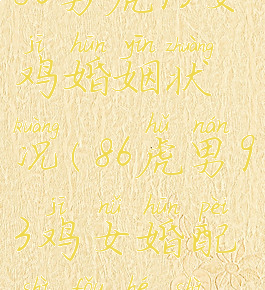 86男虎和女
jī hūn yīn zhuàng
鸡婚姻状
kuàng hǔ nán
况(86虎男9
jī nǚ hūn pèi
3鸡女婚配